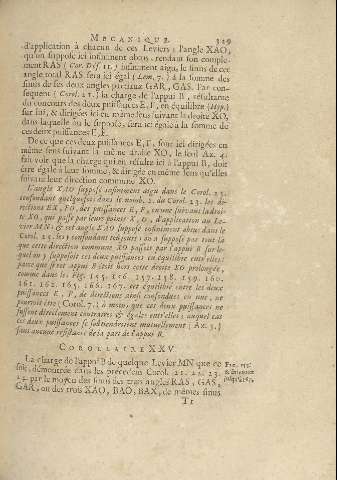 MECANIQUE. 329
d'application à chacun de ces Leviers ; l'angle XAO,
qu'on suppose ici infiniment obtus, rendant son comple-
ment RAS ( Cor. Déf. 11. ) infiniment aigu, le sinus de cet
angle total RAS sera ici égal ( Lem. 7. ) à la somme des
sinus de ses deux angles partiaux GAR, GAS. Par con-
sequent ( Corol. 21. ) la charge de l'appui B, résultante
du concours des deux puissances E, F, en équilibre ( Hyp. )
sur lui, & dirigées ici en même sens suivant la droite XO,
dans laquelle on le suppose, sera ici égale à la somme de
ces deux puissances F, E.
De ce que ces deux puissances E, F, sont ici dirigées en
même sens suivant la même droite XO, le seul Ax. 4.
fait voir que la charge qui en résulte ici à l'appui B, doit
être égale à leur somme, & dirigée en même sens qu'elles
suivant leur direction commune XO.
L'angle XAO supposé infiniment aigu dans le Corol. 23.
confondant quelquefois dans le nomb. 2. du Corol. 23. les di-
rections EX, FO, des puissances E, F, comme suivant la droi-
te XO, qui passe par leurs points d'application au Le-
vier MN ; & cet angle XAO supposé infiniment obtus dans le
Corol. 24. les confondant toûjours : on a supposé par tout là
que cette direction commune XO passoit par l'appui B sur le-
quel on y supposoit ces deux puissances en équilibre entr'elles :
parce que si cet appui B étoit hors cette droite XO prolongée,
comme dans les Fig. 155. 156. 157. 158. 159. 160.
161. 162. 163. 166. 167. cet équilibre entre les deux
puissances E, F, de directions ainsi confondues en une, ne
pourroit être ( Corol. 7. ) à moins que ces deux puissances ne
fussent directement contraires & égales entr'elles ; auquel cas
ces deux puissances se soûtiendroient mutuellement ( Ax. 3. )
sans aucune resistance de la part de l'appui B.
COROLLAIRE XXV.
La charge de l'appui B de quelque Levier MN que ce
soit, démontrée dans les précedens Corol. 21. 22. 23.
24. par le moyen des sinus des trois angles RAS, GAS,
GAR, ou des trois XAO, BAO, BAX, de mêmes sinus
Tt